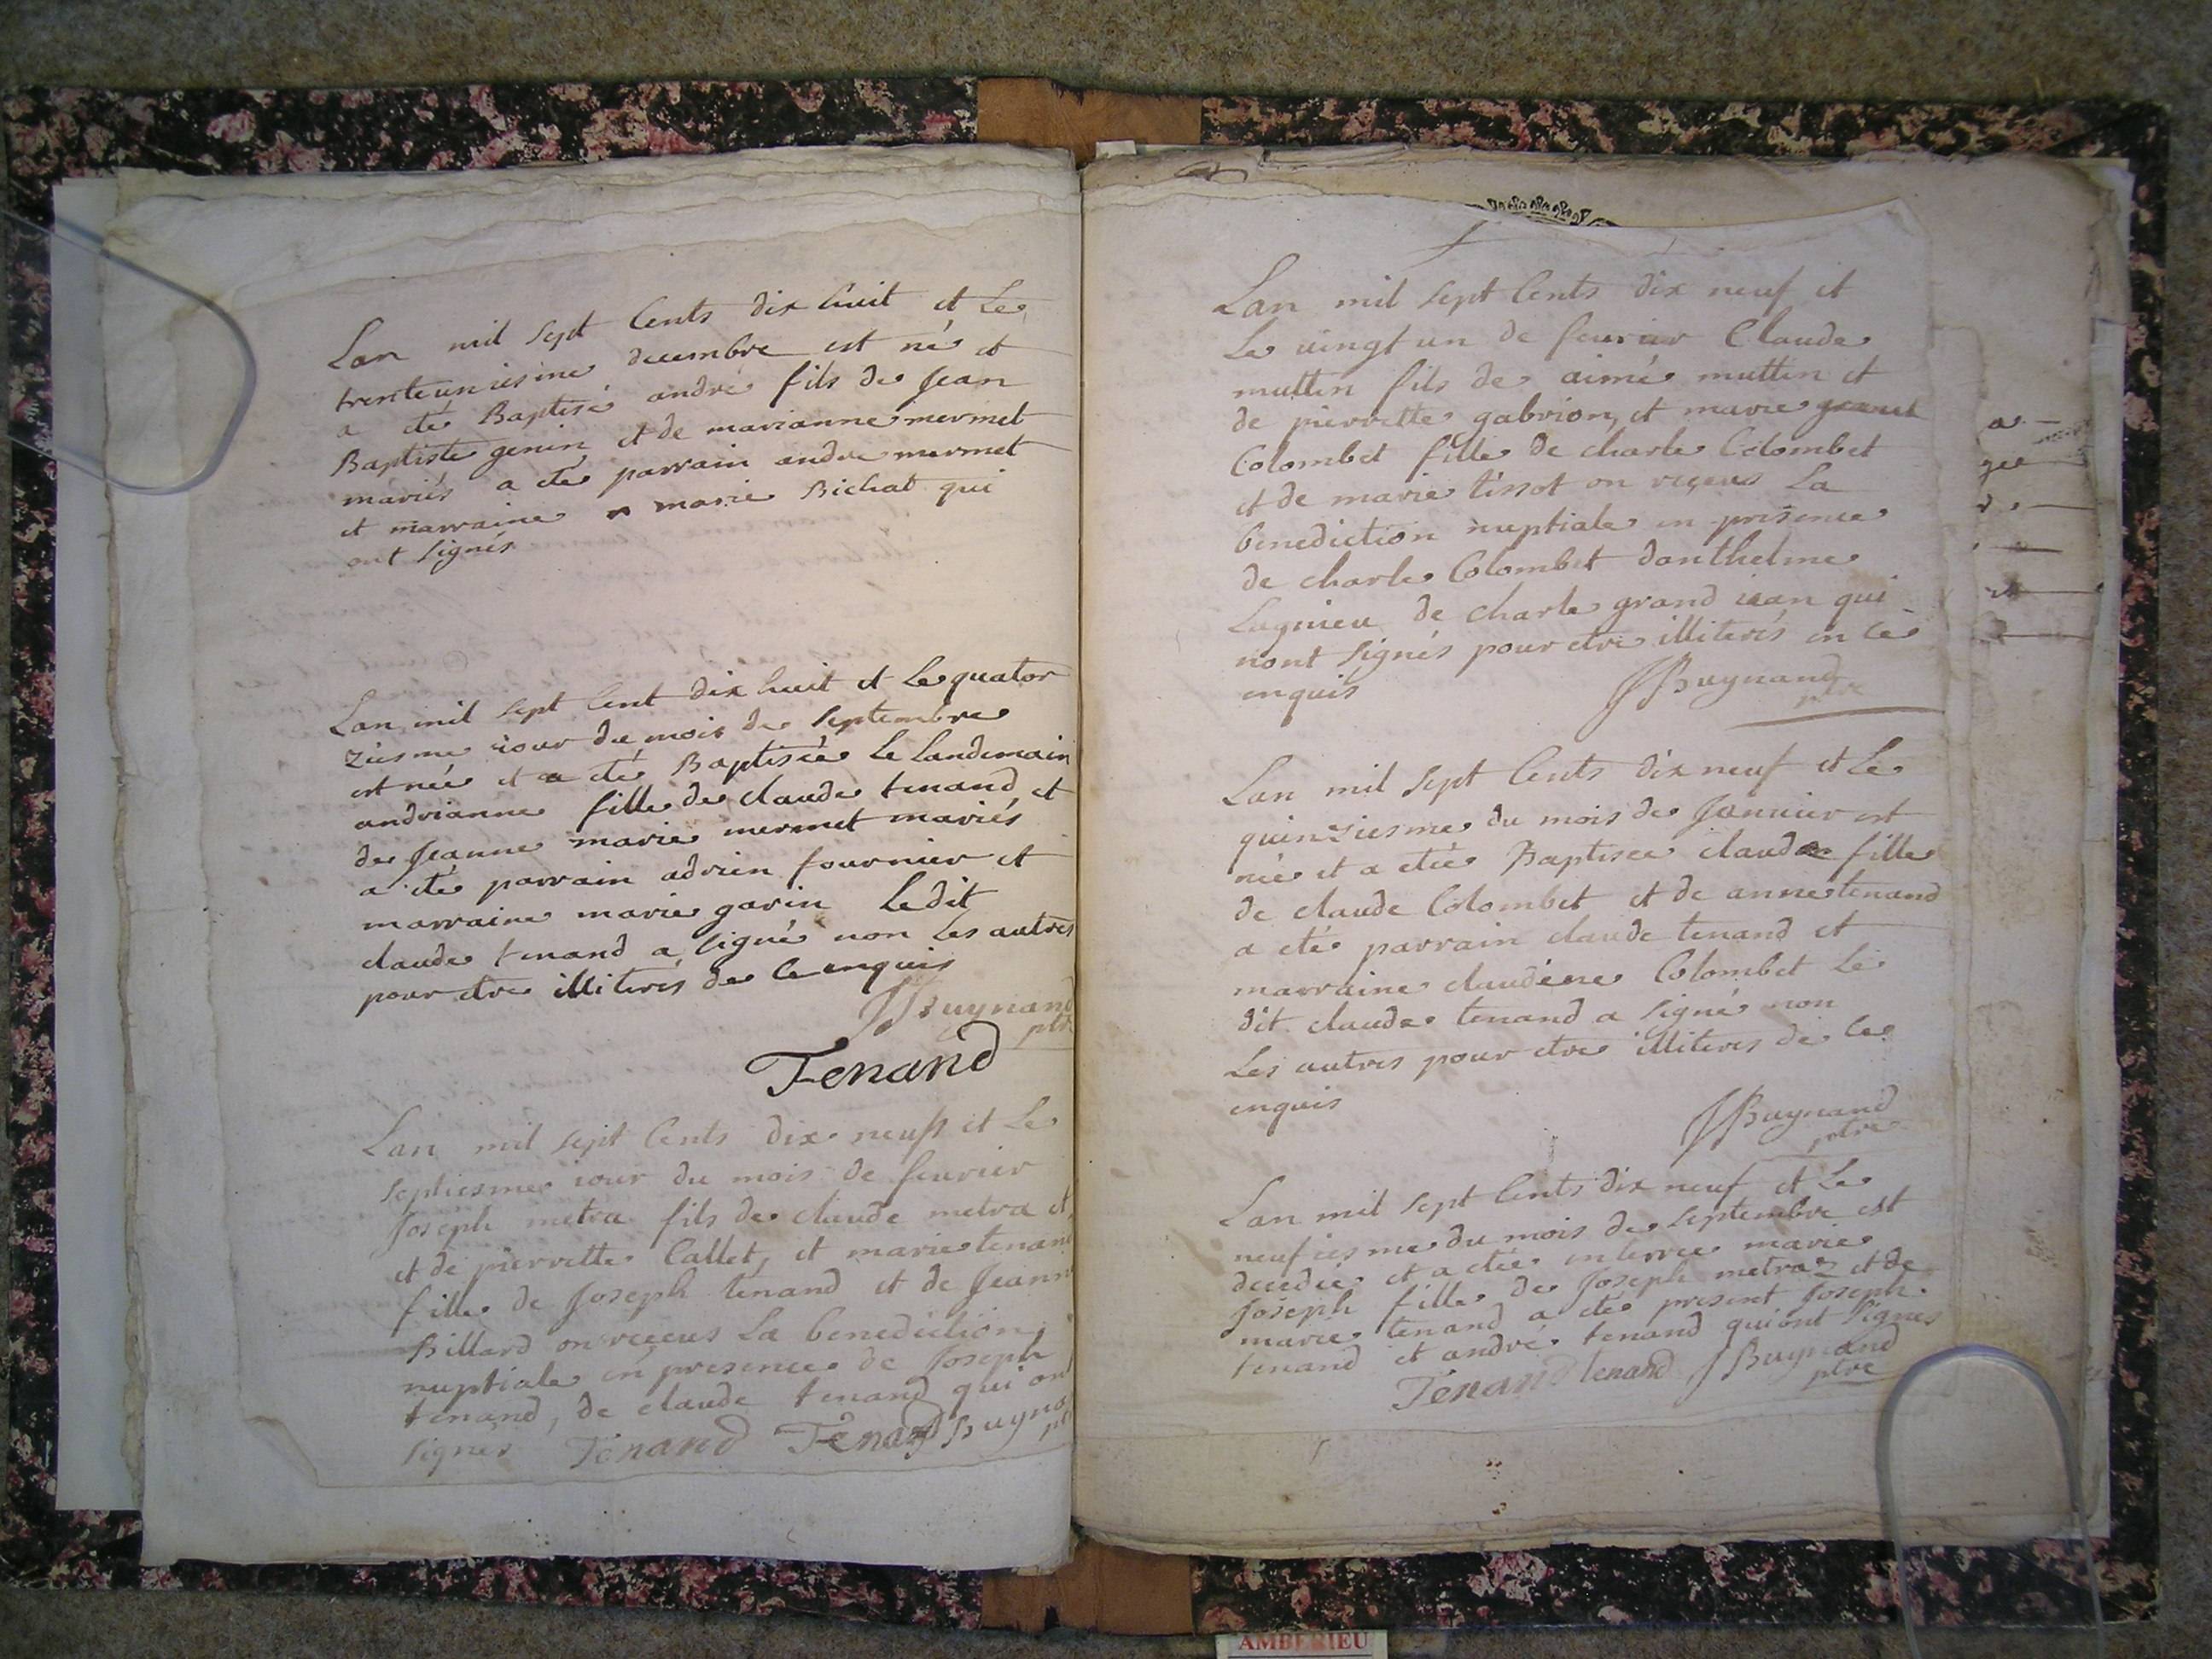 Lan mil sept Cents dix huit et Le
trenteuniesme decembre est né et
a eté Baptisé andré fils de Jean
Baptiste genin et de marianne mermet
mariés a eté parrain andre mermet
et marraine marie Bichat qui
ont signés
Lan mil sept Cent dix huit et Le quator
ziesme iour du mois de septembre
est née et a eté Baptisée Le Landemain
andrianne fille de claude tenand et
de Jeanne marie mermet mariés
a eté parrain adrien fournier et
marraine marie garin Ledit
claude tenand a signé non Les autres
pour etre illiterés de Ce enquis
JBuynand
ptre
Tenand
Lan mil sept Cents dix neuf et Le
septiesme iour du mois de feurier
Joseph metra fils de claude metra et
et de pierrette Callet, et marie tenand
fille de Joseph tenand et de Jeanne
Billard on reçeus La benediction
nuptiale en presence de Joseph
tenand, de claude tenand qui on
signés Tenand Tenand Buyna
Lan mil sept Cents dix neuf et
Le uingt un de feurier Claude
mutten fils de aimé mutten et
de pierrette gabrion, et marie
Colombet fille de charle Colombet
et de marie tissot on reçeus La
benediction nuptiale en presence
de charle Colombet danthelme
Lagnieu de charle grand iean qui
nont signés pour etre illiterés en Ce
enquis JBuynand
ptre
Lan mil sept Cents dix neuf et Le
quinziesme du mois de Januier est
née et a etée Baptisee claude fille
de claude Colombet et de anne tenand
a eté parrain claude tenand et
marraine claudine Colombet Le
dit claude tenand a signé non
Les autres pour etre illiteres de Ce
enquis
JBuynand
ptre
Lan mil sept Cents dix neuf et Le
neufiesme du mois de septembre est
decedée et a etée enterree marie
Joseph fille de Joseph metraz et de
marie tenand a eté present Joseph
tenand et andré tenand qui ont signes
Tenand tenand JBuynand
ptre
AMBERIEU